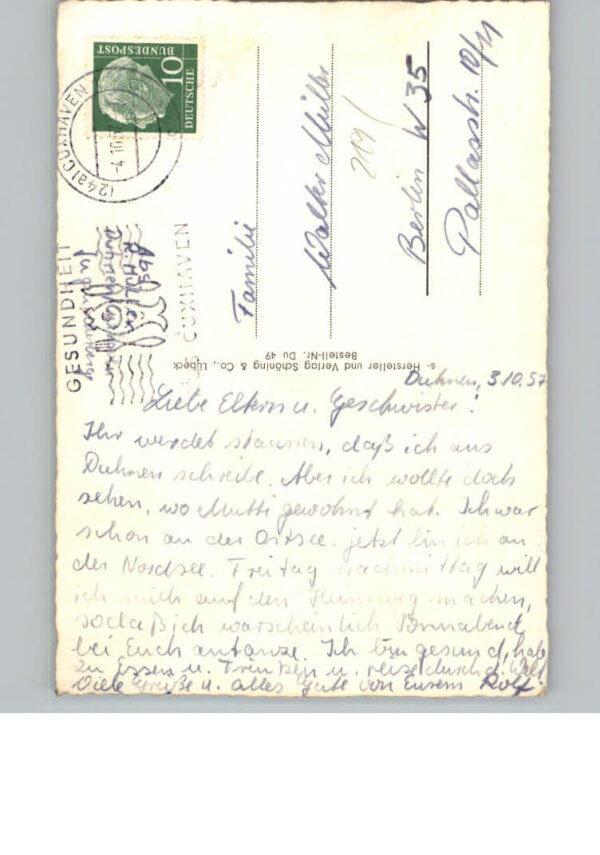 DEUTSCHE
BUNDESPOST
10
(24a) CUXHAVEN
-4.10.57
GESUNDHEIT
CUXHAVEN
Abs.
R. Müller
Duhnen
Familie
Walter Müller
219/
Berlin W 35
Pallasstr. 10/11
Hersteller und Verlag Schöning & Co., Lübeck
Bestell-Nr. Du 49
Duhnen, 3.10.57
Liebe Eltern u. Geschwister!
Ihr werdet staunen, daß ich aus
Duhnen schreibe. Aber ich wollte doch
sehen, wo Mutti gewohnt hat. Ich war
schon an der Ostsee. jetzt bin ich an
der Nordsee. Freitag nachmittag will
ich mich auf den Heimweg machen,
sodaß ich warscheinlich Sonnabend
bei Euch antanze. Ich bin gesund, habe
zu Essen u. Trinken u. reise durch d. Welt
Viele Grüße u. alles Gute von Eurem Rolf